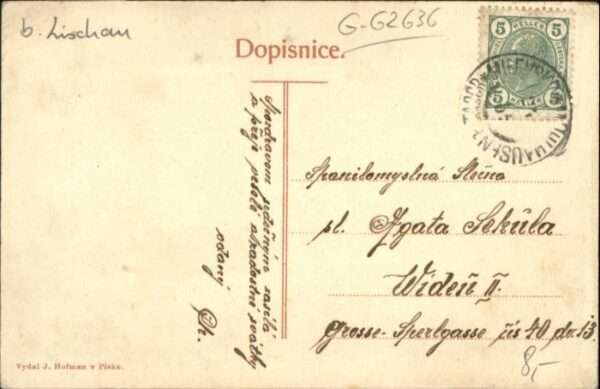 b. Lischau
G-G2636
Dopisnice.
5 HELLER 5
5 5
MÜHLHAUSEN
S pozdravem srdečným zasílá
a přeje veselé a radostné svátky
oddaný
Ph.
Spanilomyslná Slečna
sl. Agata Sekůla
Wídeň II.
Grosse-Sperlgasse čís 40 dv. 13.
8,-
Vydal J. Hofman v Písku.